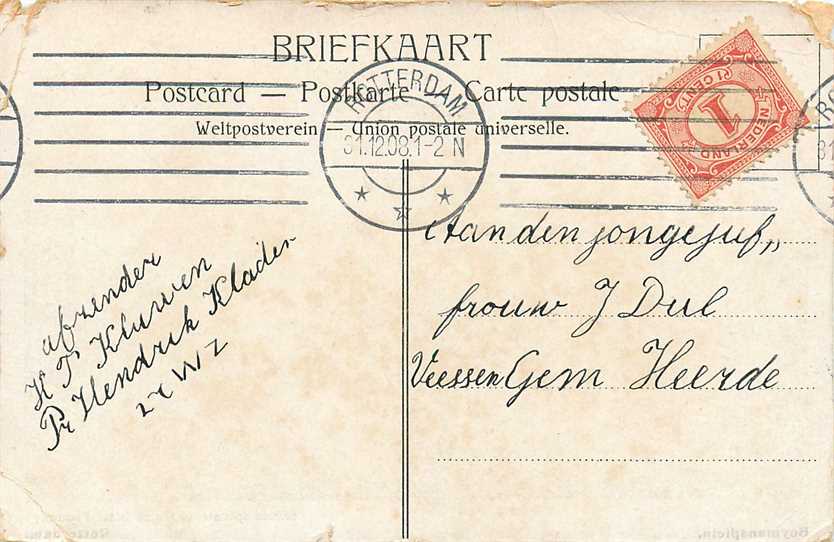 BRIEFKAART
Postcard — Postkarte — Carte postale
Weltpostverein — Union postale universelle.
ROTTERDAM
31.12.08.1-2 N
1
NEDERLAND
1 CENT
Aan den jongejuf„
frouw J Dul
Veessen Gem Heerde
afzender
K T Kluwen
Pr Hendrik Klader
WZ
Rotterdam.
Boymansplein.